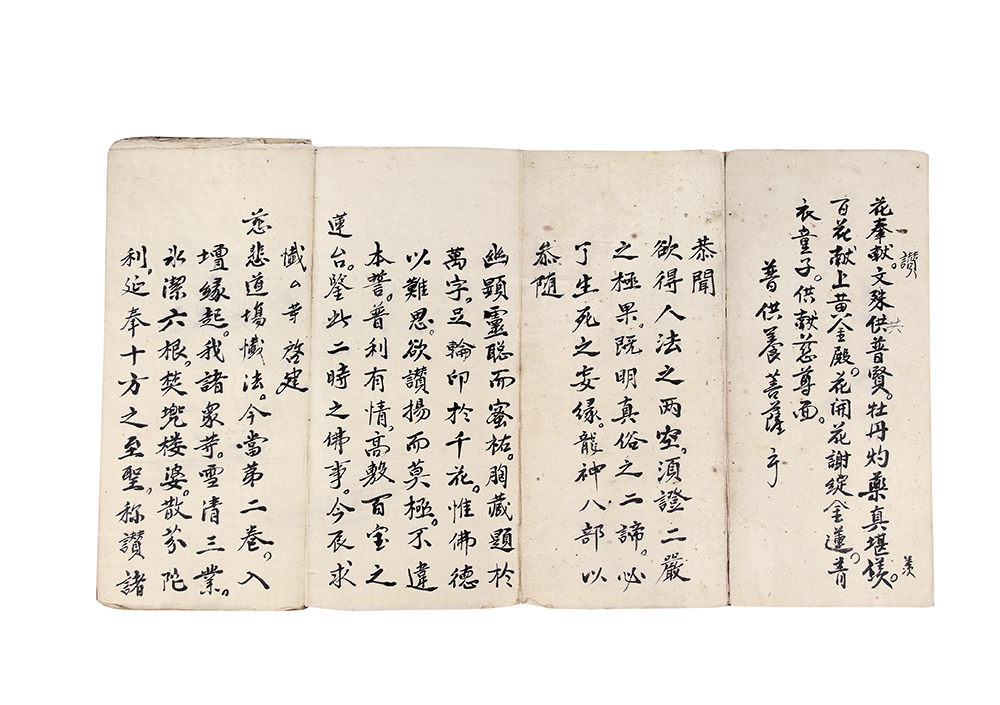 讚
花奉献。文殊供普賢。牡丹灼藥真堪羙。
共
羡
百花献上黄金殿。花開花謝綻金蓮。青
衣童子。供献慈尊面。
普供養菩薩
恭聞
欲得人法之两空。須證二嚴
之極果。既明真俗之二諦。必
了生死之妄緣。龍神八部以
恭随
幽顕靈聡而蜜祐。胸藏題於
萬字。足輪印於千花。惟佛德
以難思。欲讃揚而莫極。不違
本誓。普利有情。高敷百宝之
蓮台。鑒此二時之佛事。今辰求
懺々等 啓建
慈悲道塲懺法。今當第二卷。入
壇緣起。我諸衆等。雪清三業。
氷潔六根。焚兠楼婆。散芬陀
利。延奉十方之至聖。称讃諸